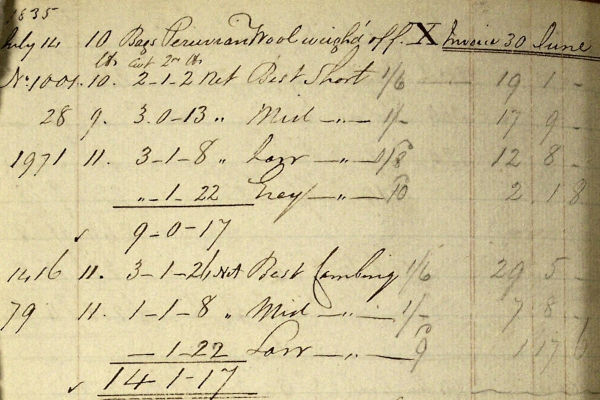 1835
July 14 10 Bags Peruvian Wool weigh'd off. X Invoice 30 June
lbs Cwt Qrs lbs
No. 1001. 10. 2-1-2 Net Best Short 1/6 19 1 -
28 9. 3.0-13 " Mid -"- 1/- 17 9 -
1971 11. 3-1-8 " Low -"- /8 12 8 -
"-1-22 Grey -"- 10 2 1 8
9-0-17
1416 11. 3-1-26 Net Best Combing 1/6 29 5 -
79 11. 1-1-8 " Mid -"- 1/- 7 8 -
-1-22 Low -"- 9 1 17 6
14 1-17